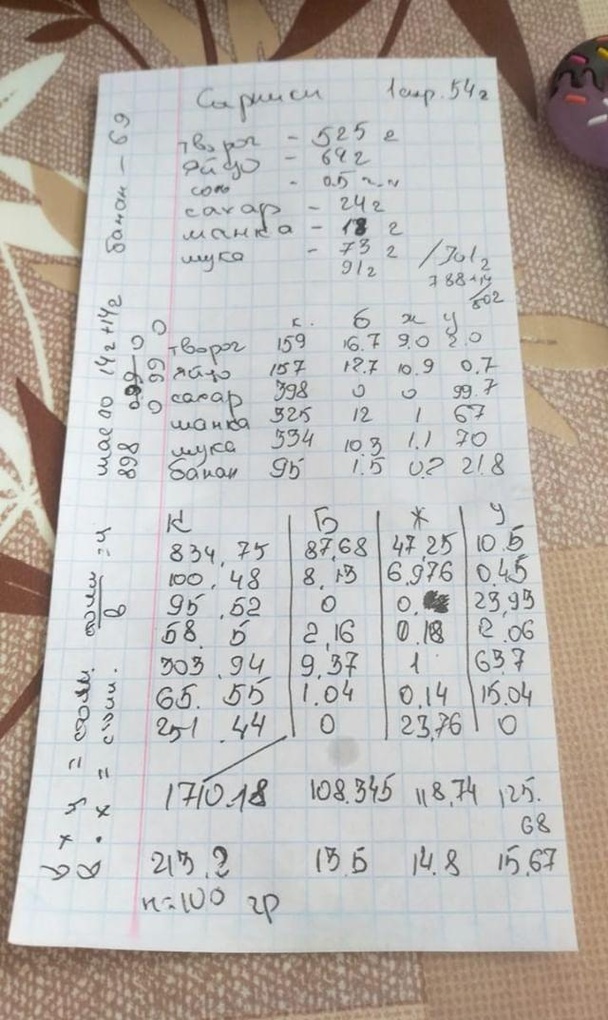 Сырники 1 сыр. 54г
творог - 525 г
яйцо - 64 г
соль - 0.5 ч.л
сахар - 24 г
манка - 18 г
мука - 73 г
91г
788+14
802
к. б ж у
творог 159 16.7 9.0 2.0
яйцо 157 12.7 10.9 0.7
сахар 398 0 0 99.7
манка 325 12 1 67
мука 334 10.3 1.1 70
банан 95 1.5 0.2 21.8
К Б Ж У
834,75 87,68 47,25 10.5
100,48 8,13 6,976 0.45
95,52 0 0 23,93
58.5 2,16 0.18 12.06
303,94 9,37 1 637
65.55 1.04 0.14 15.04
251.44 0 23,76 0
1710.18 108.345 118,74 125.
68
213.2 13.5 14.8 15.67
н=100 гр
банан - 69
масло 14г+14г
898 0 99 0
0 99 0